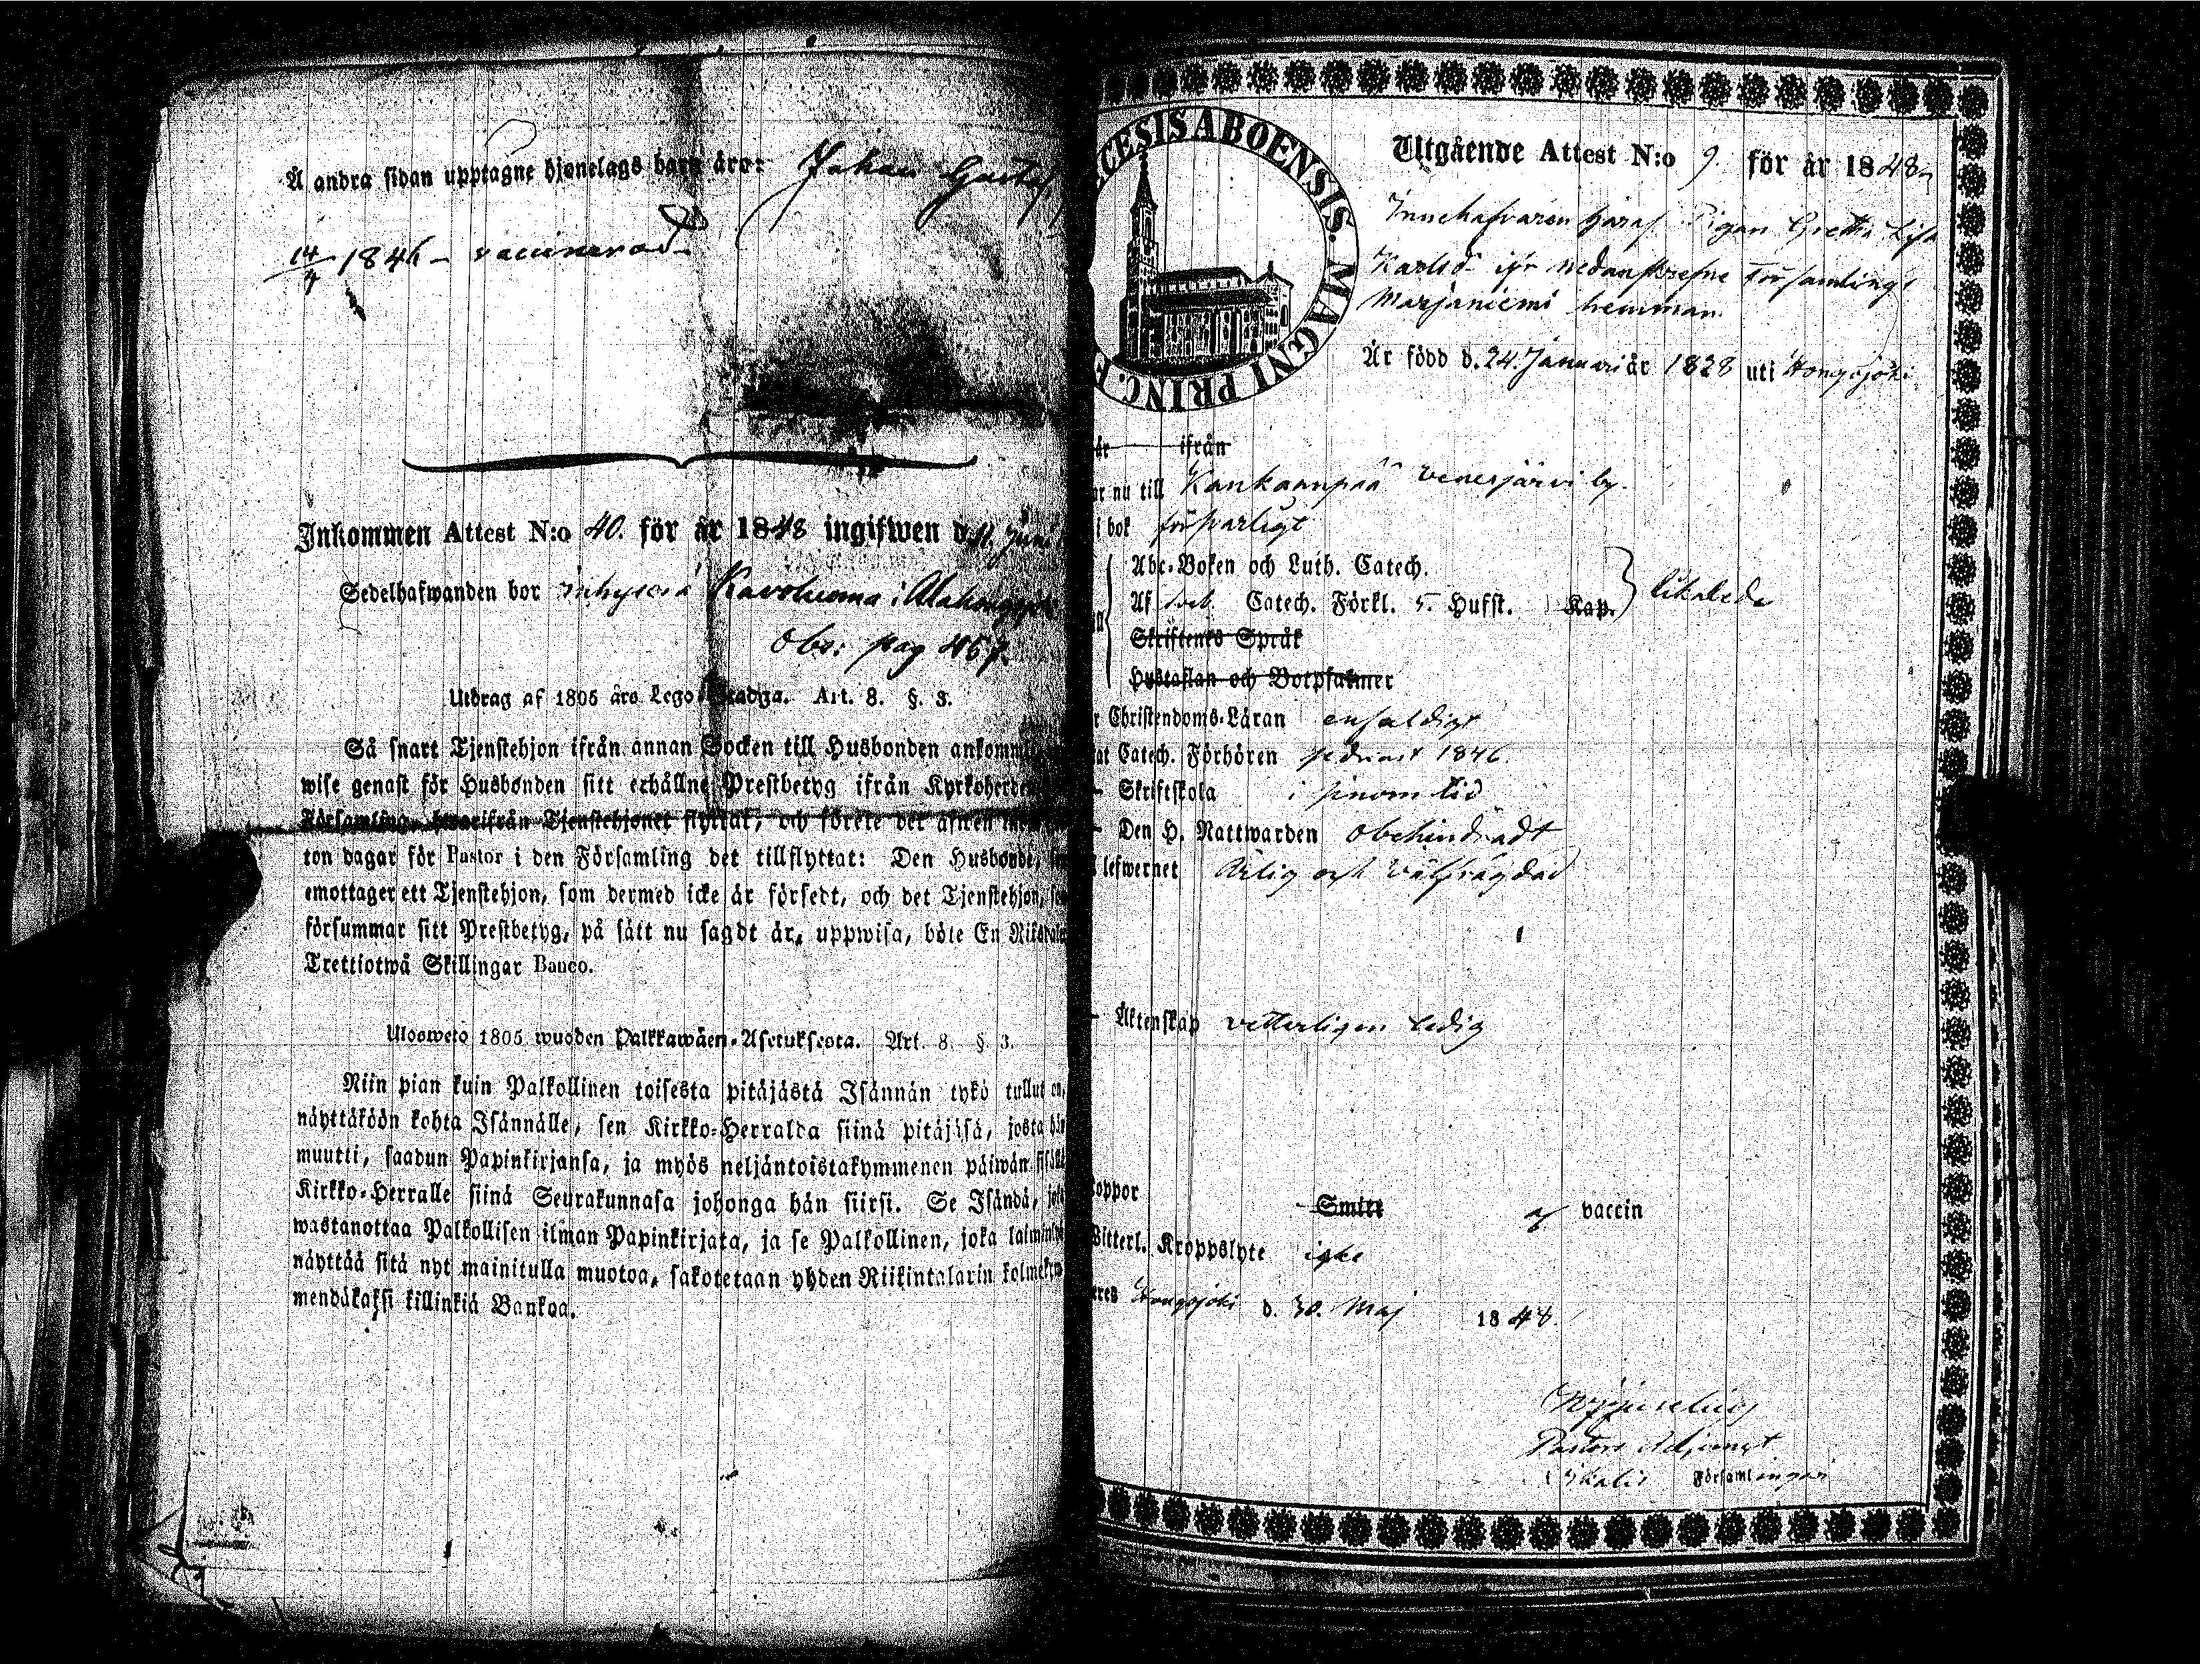 Å andra sidan upptagne hjonelags barn äro: Johan Gustaf
14/7 1846 - vaccinerad
Inkommen Attest N:o 40. för år 1848 ingifwen d. 11. Juni
Sedelhafwanden bor inhyses å i
Obs: pag 457.
Utdrag af 1805 års Lego Stadga. Art. 8. §. 3.
Så snart Tjenstehjon ifrån annan Socken till Husbonden ankommit
wise genast för Husbonden sitt erhållne Prestbetyg ifrån Kyrkoherden
Församling, hwarifrån Tjenstehjonet flyttat, och förete det äfwen
ton dagar för Pastor i den Församling det tillflyttat: Den Husbonde,
emottager ett Tjenstehjon, som dermed icke är försedt, och det Tjenstehjon,
försummar sitt Prestbetyg, på sätt nu sagdt är, uppwisa, böte En Riksdaler
Trettiotwå Skillingar Banco.
Ulosweto 1805 wuoden Palkkawäen-Asetuksesta. Art. 8. § 3.
Niin pian kuin Palkollinen toisesta pitäjästä Isännän tykö tullut on,
näyttäköön kohta Isännälle, sen Kirkko-Herralda siinä pitäjäsä, josta hän
muutti, saadun Papinkirjansa, ja myös neljäntoistakymmenen päiwän sisällä
Kirkko-Herralle siinä Seurakunnasa johonga hän siirsi. Se Isändä, joka
wastanottaa Palkollisen ilman Papinkirjata, ja se Palkollinen, joka laiminlyö
näyttää sitä nyt mainitulla muotoa, sakotetaan yhden Riikintalarin kolmekym
mendäkaksi killinkiä Bankoa.
CESIS ABOENSIS. MAGNI PRINC. F
Utgående Attest N:o 9. för år 1848,
Innehafvaren häraf Pigan Greta Lisa
Karlsd. ifr. nedanskrefne Församlings
Marjaniemi hemman.
Är född d. 24. Januari år 1828 uti Hongojoki
år ifrån
nu till Kankaanpää Venesjärvi by.
i bok försvarligt
Abc-Boken och Luth. Catech.
Af Catech. Förkl. 5. Hufst. Kap. likaledes
Skriftenes Språk
Hustaflan och Botpsalmer
Christendoms-Läran enfaldigt
at Catech. Förhören sednast 1846.
Skriftskola i sinom tid
Den H. Nattwarden obehindradt
lefwernet Ärlig och välfrägdad
Äktenskap vetterligen ledig
koppor Smitt af vaccin
Witterl. Kroppslyte icke
Hongojoki d. 30. Maj 1848.
Pastors Adjungt
Församlingar